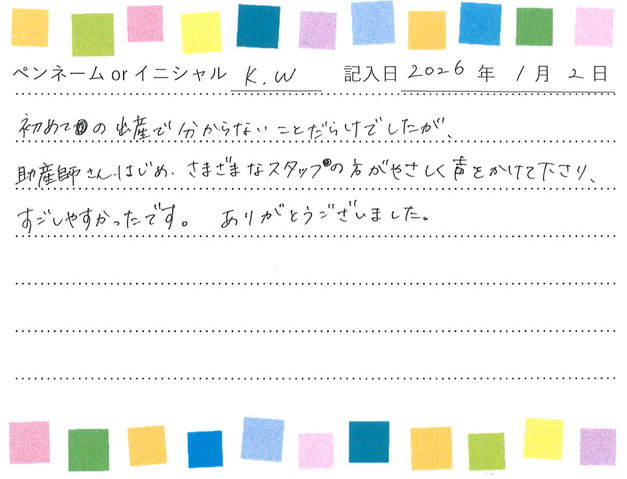 ペンネーム or イニシャル K.W 記入日 2026 年 1 月 2 日
初めての出産で分からないことだらけでしたが、
助産師さんはじめ、さまざまなスタッフの方がやさしく声をかけて下さり、
すごしやすかったです。 ありがとうございました。